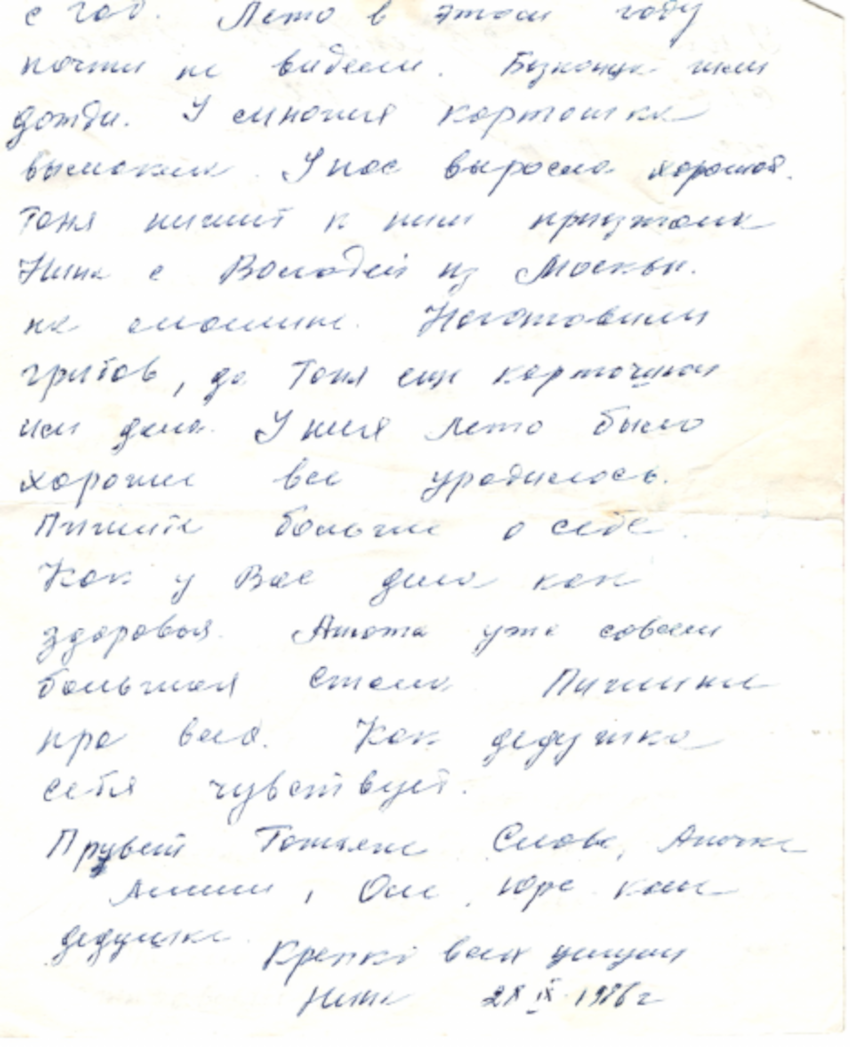 с год. Лето в этом году
почти не видели. Безконца шли
дожди. У многих картошка
вымокла. У нас выросла хорошая.
Тоня пишит к ним приезжали
Нина с Володей из Москвы.
на машине. Наготовили
грибов, да Тоня еще карточки
им дала. У них лето было
хорошее все уродилось.
Пишите больше о себе.
Как у Вас дела как
здоровья. Анюта уже совсем
большая стала. Пишите
про всех. Как дедушка
себя чувствует.
Привет Татьяне Слава, Аночке
, Оле, Юре
дедушке.
Крепко всех целуем
Нина 28 IX 1986 г